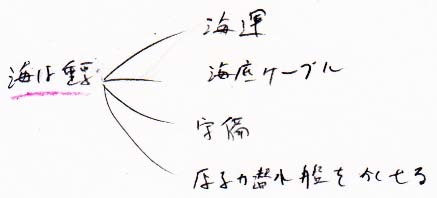 海は重要
海運
海底ケーブル
守備
原子力潜水艦をかくせる